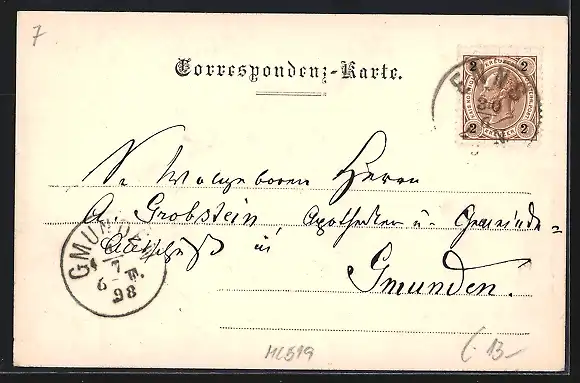 7
Correspondenz-Karte.
2 2
2 KREUZER 2
ENNS
30
Sr Wolgeboren Herrn
A. Grobstein, Apotheker u. Gemeinde=
Ausschuß in
Gmunden.
GMUNDEN
1 7 M.
6
98
HL519
13-